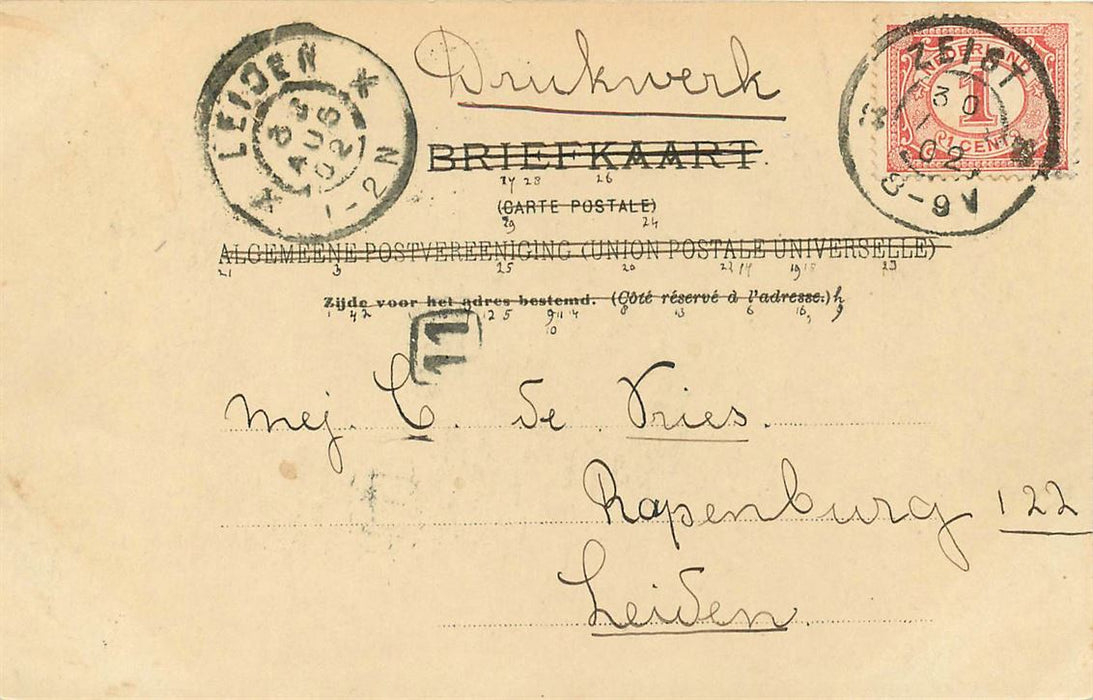 Drukwerk
LEIDEN
8 3
AUG
02
1-2N
NEDERLAND
1
CENT
ZEIST
30
02
8-9V
BRIEFKAART
27 28 26
(CARTE POSTALE)
29 24
ALGEMEENE POSTVEREENIGING (UNION POSTALE UNIVERSELLE)
21 3 25 20 22 17 19 18 23
Zijde voor het adres bestemd. (Côté réservé à l'adresse.) h
1 4 2 12 5 9 11 14 8 13 6 16 9
10
11
Mej. C. de Vries.
Rapenburg 122
Leiden.